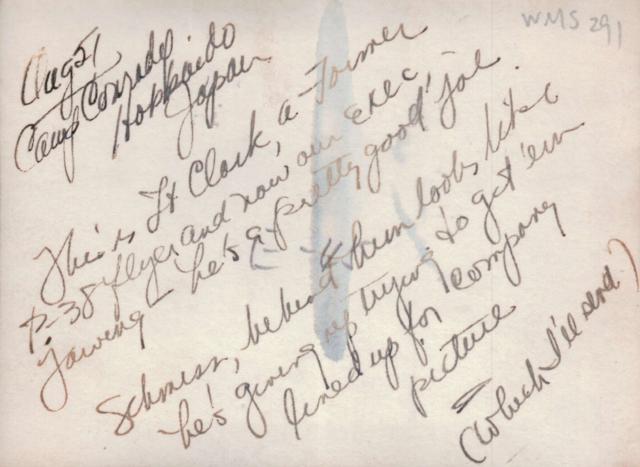 WMS 291
Aug 51
Camp Conrady
Hokkaido
Japan
This is Lt Clark, a Former
P-38 flyer and now our exec,
yawning - he's a pretty good joe.
behind him looks like
he's giving up trying to get 'em
lined up for company
picture
(which I'll send)